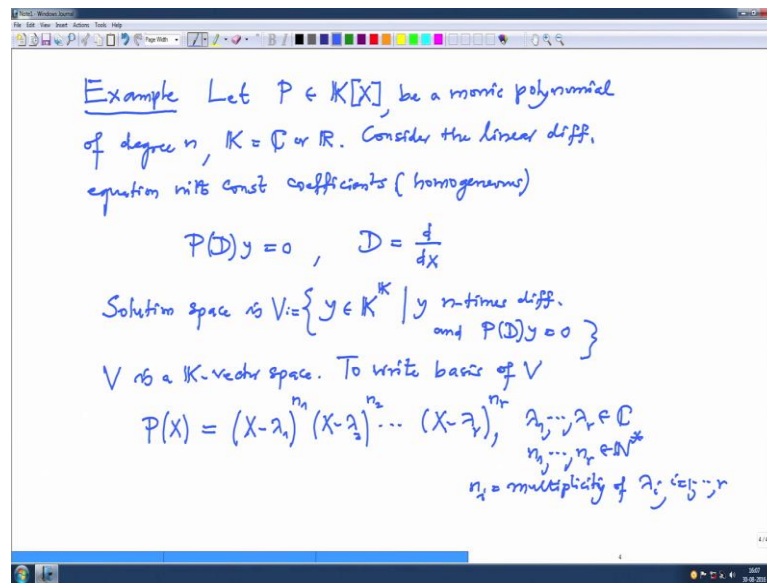 Note1 - Windows Journal
File Edit View Insert Actions Tools Help
Page Width
Example Let P ∈ 𝕂[X], be a monic polynomial
of degree n, 𝕂 = ℂ or ℝ. Consider the linear diff.
equation with const coefficients (homogeneous)
P(D)y = 0 , D = d/dx
Solution space is V := { y ∈ 𝕂^𝕂 | y n-times diff.
and P(D)y = 0 }
V is a 𝕂-vector space. To write basis of V
P(X) = (X-λ₁)^n₁ (X-λ₂)^n₂ ... (X-λᵣ)^nᵣ, λ₁, ..., λᵣ ∈ ℂ
n₁, ..., nᵣ ∈ ℕ*
nᵢ = multiplicity of λᵢ, i=1, ..., r
4/4
4
16:07
30-08-2015